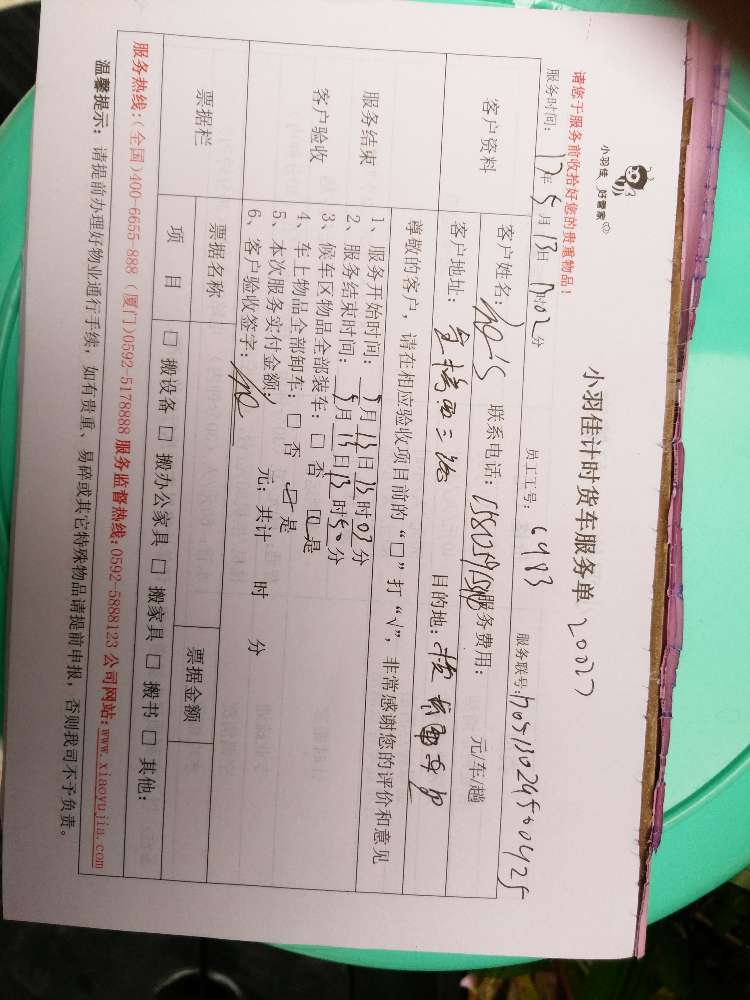 小羽佳 好管家
小羽佳计时货车服务单 20027
请您于服务前收拾好您的贵重物品！
服务时间： 17年 5月 13日 时02分 员工工号： 6983 服务联号：
客户资料 客户姓名： 联系电话： 服务费用： 元/车/趟
客户地址： 目的地：
尊敬的客户，请在相应验收项目前的“□”打“√”，非常感谢您的评价和意见
服务结束
客户验收
1、服务开始时间： 月13日13时03分
2、服务结束时间： 月13日13时50分
3、候车区物品全部装车：□ 否 □ 是
4、车上物品全部卸车：□ 否 □ 是
5、本次服务实付金额： 元；共计 时 分
6、客户验收签字：
票据栏 票据名称 票据金额
项 目 □ 搬设备 □ 搬办公家具 □ 搬家具 □ 搬书 □ 其他：
服务热线：(全国)400-6655-888 (厦门)0592-5178888 服务监督热线：0592-5888123 公司网站：www.xiaoyujia.com
温馨提示：请提前办理好物业通行手续，如有贵重、易碎或其它特殊物品请提前申报，否则我司不予负责。